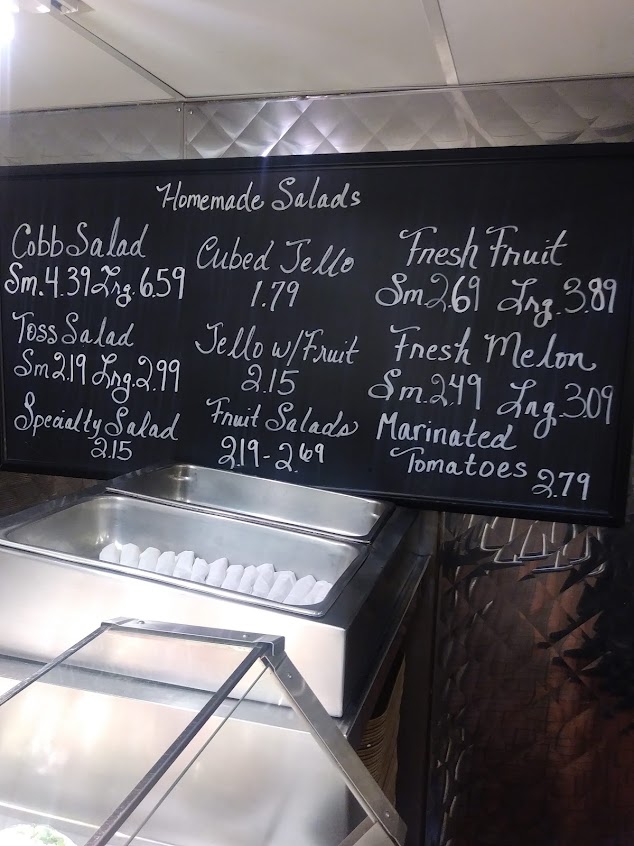 Homemade Salads
Cobb Salad
Sm. 4.39 Lrg. 6.59
Toss Salad
Sm 2.19 Lrg. 2.99
Specialty Salad
2.15
Cubed Jello
1.79
Jello w/ Fruit
2.15
Fruit Salads
2.19 - 2.69
Fresh Fruit
Sm 2.69 Lrg. 3.89
Fresh Melon
Sm. 2.49 Lrg. 3.09
Marinated
Tomatoes 2.79